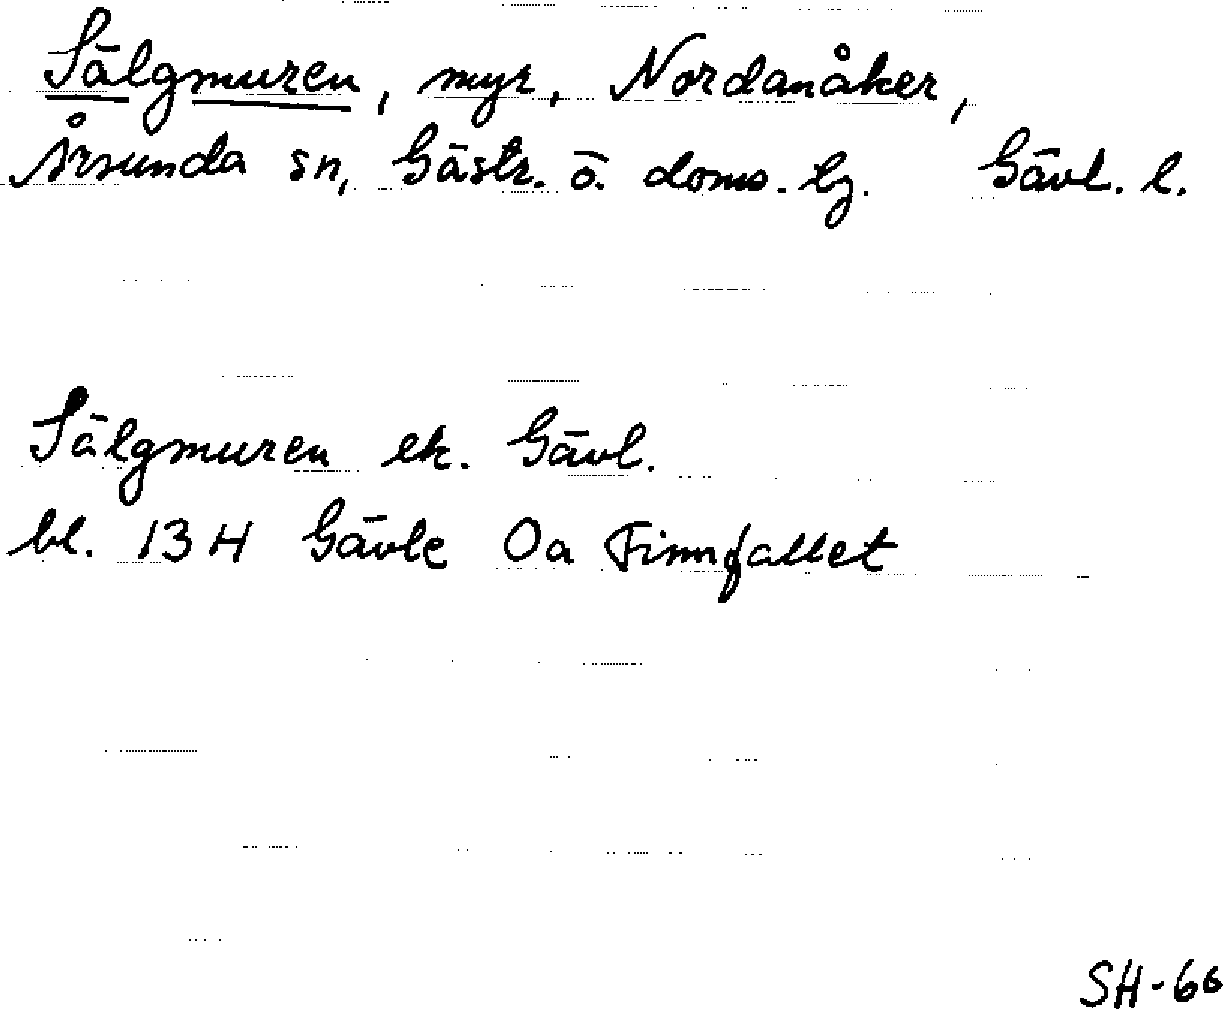 Sälgmuren, myr, Nordanåker,
Årsunda sn, Gästr. ö. doms. Gävl. l.
Sälgmuren ek. Gävl.
bl. 13 H Gävle Oa Finnfallet
SH-66